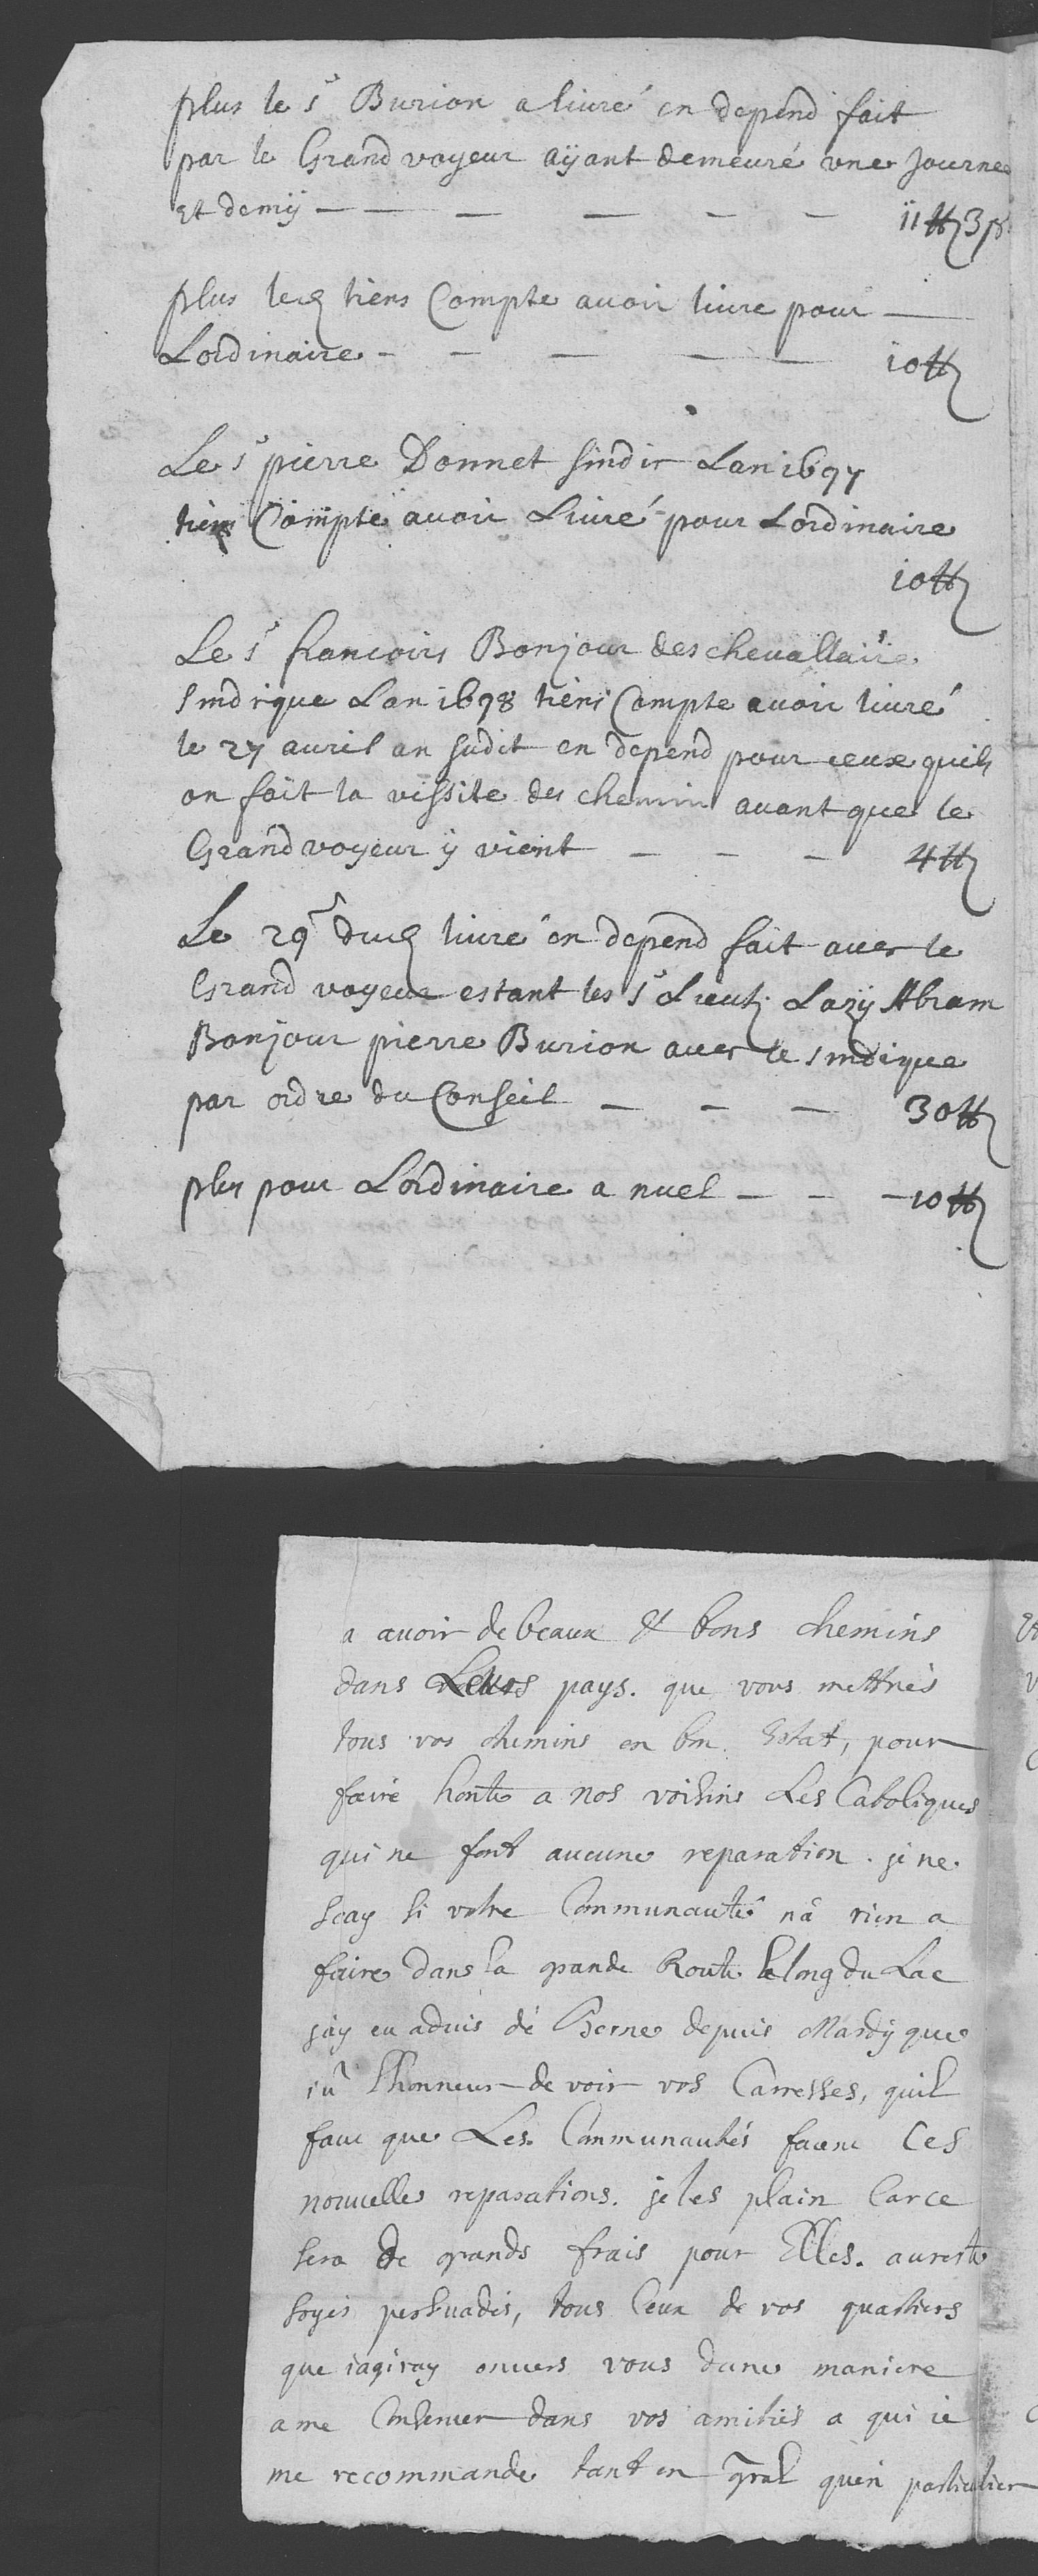 plus le s^r Burion a livré en depend fait
par le Grand voyeur aÿant demeuré une Journee
Et demÿ — — — — — — ii ℔ 3 ß
plus led tiens Compte avoir livre pour —
Lordinaire - — — — — 10 ℔
Le s^r pierre Donnet sindic Lan 1697
tiens Compte avoir Livré pour Lordinaire
10 ℔
Le s^r francoirs Bonjour des chevallaire
sindique Lan 1698 tiens Compte avoir livré
le 27 avril an sudit en depend pour ceux quils
on fait la vissite des chemin avant que le
Grand voyeur ÿ vient — — — 4 ℔
Le 29^e dud livré en depend fait avec le
Grand voyeur estant les s^r Lieut. Lazÿ Abram
Bonjour pierre Burion avec le sindique
par ordre du Conseil — — — 30 ℔
plus pour Lordinaire a nuel — — — 10 ℔
a avoir de beaux & bons chemins
dans Leurs pays. que vous mettriés
tous vos chemins en bon Estat, pour
faire honte a nos voisins Les Catoliques
qui ne font aucune reparation. je ne
scay si votre Communauté nâ rien a
faire dans la grande Route le long du Lac
jày eu advis de Berne depuis Mardÿ que
l'honneur de voir vos Carresses, quil
faut que Les Communautés facent Ces
nouvelles reparations. je les plain Carce
sera de grands frais pour Elles. aureste
soyés persuadés, tous Ceux de vos quartiers
que iagiray envers vous dune maniere
a me Conserver dans vos amitiés a qui ie
me recommande tant en gñal quen particulier